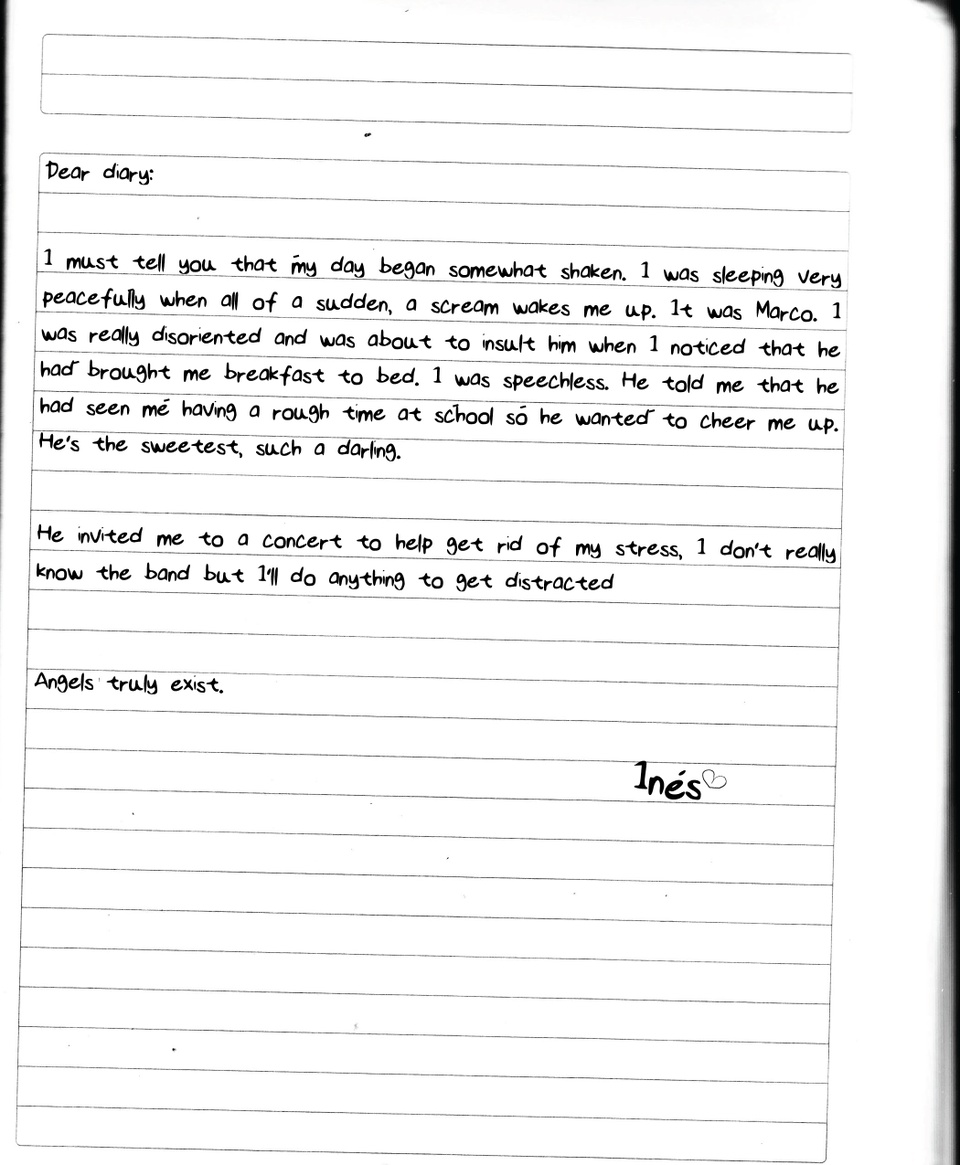 Dear diary:
I must tell you that my day began somewhat shaken. I was sleeping very
peacefully when all of a sudden, a scream wakes me up. It was Marco. I
was really disoriented and was about to insult him when I noticed that he
had brought me breakfast to bed. I was speechless. He told me that he
had seen me having a rough time at school so he wanted to cheer me up.
He's the sweetest, such a darling.
He invited me to a concert to help get rid of my stress, I don't really
know the band but I'll do anything to get distracted
Angels truly exist.
Inés♡